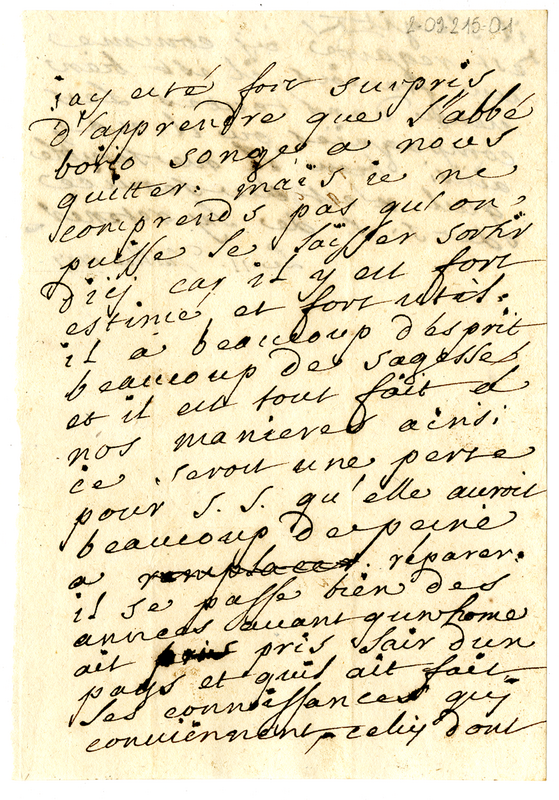 2-09-215-01
iay esté fort surpris
d'apprendre que l'abbé
borio songe a nous
quitter. mais ie ne
comprends pas qu'on
puisse le laisser sortir
d'icy car il y est fort
estimé, et fort utile.
il a beaucoup d'esprit
beaucoup de sagesse
et il est tout fait a
nos manieres ainsi
ce seroit une perte
pour S. S. qu'elle auroit
beaucoup de peine
a remplacer réparer.
il se passe bien des
années avant qun home
ait pris l'air d'un
pays et quil ait fait
les connoissances quy
conviennent, celuy dont